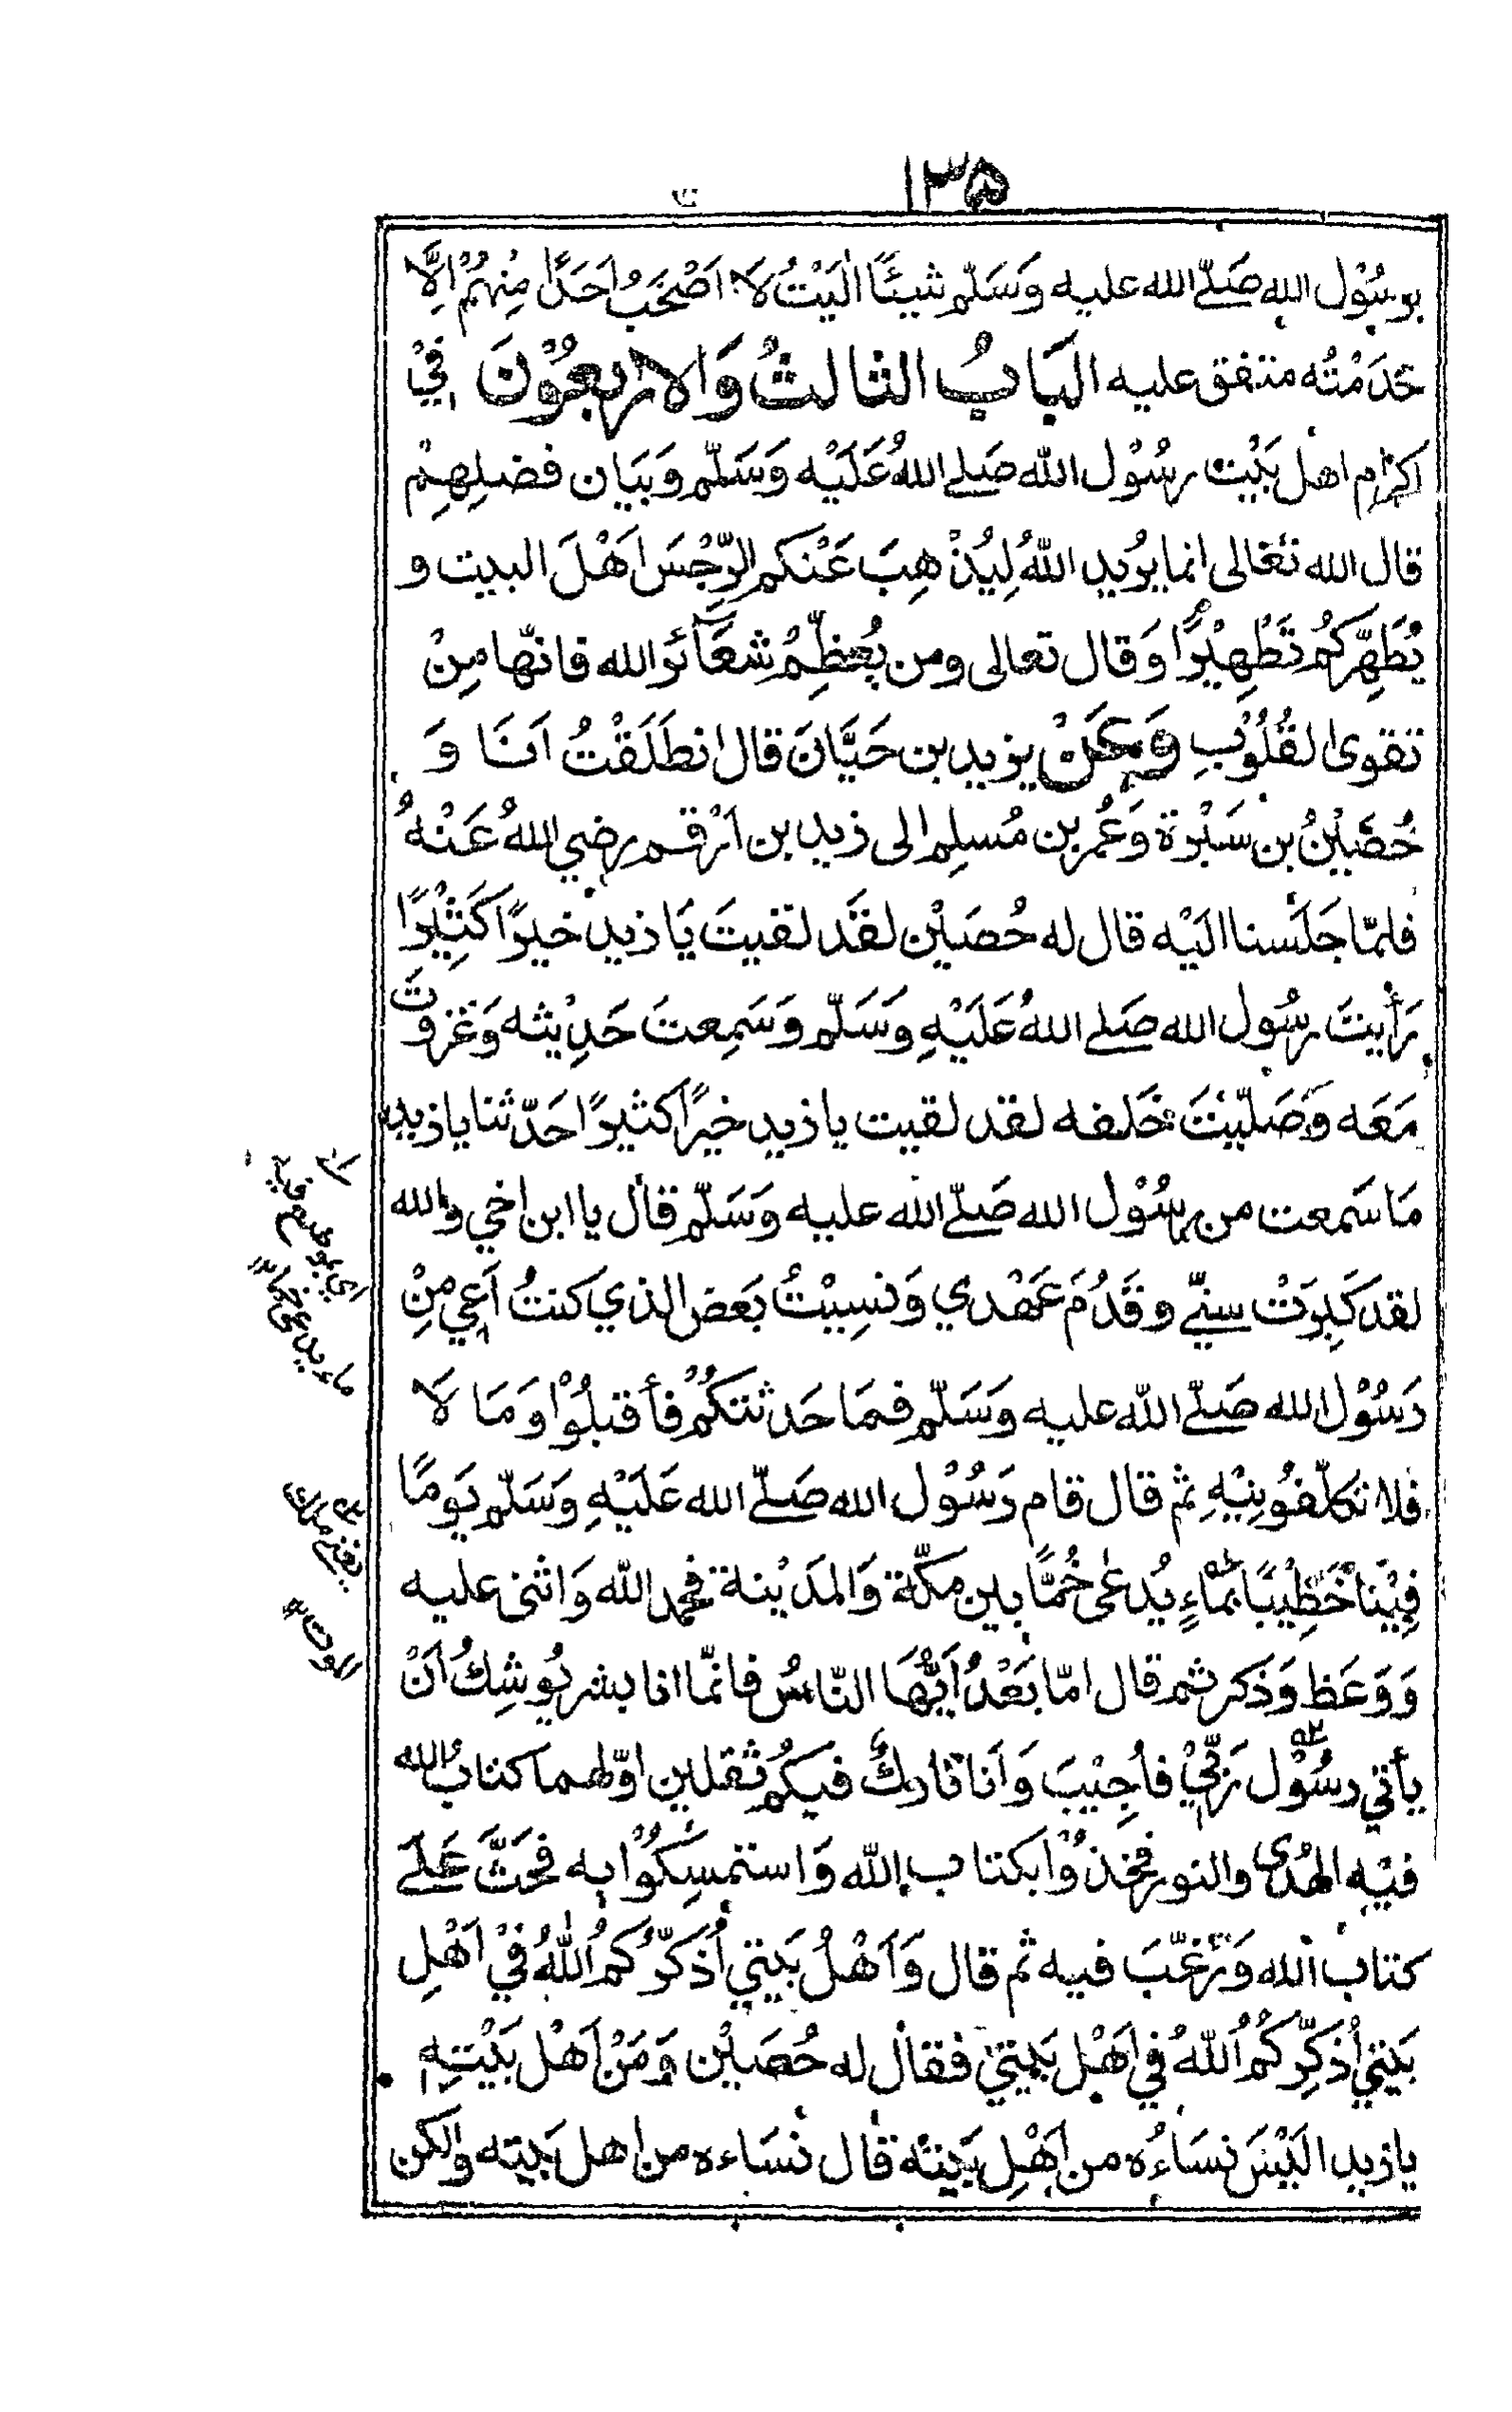 ١٣۵
برسُوْل الله صَلّے الله عليه وَسَلّم شيئًا اٰلَيْتُ لَا اَصْحَبُ اَحَدًا مِنْهُمْ اِلَّا
خَدَمْتُه متفق عليه البَابُ الثالثُ وَالاربعُوْنَ فِيْ
اكرام اهل بَيْت رسُوْل الله صَلے اللهُ عَلَيْه وَسَلّم وَبَيَان فضلِهِمْ
قال الله تعَالى انما يرُيد اللهُ لِيُذْهِبَ عَنْكم الرِّجْسَ اَهْلَ البيت و
يُطَهِّرَكُمْ تَطْهِيْرًا وَقال تعالى ومن يُعظِّمْ شعَآئر الله فانّها مِنْ
تقوى القُلُوْبِ وَعَنْ يزيد بن حَيَّانَ قال انطَلَقْتُ اَنَا وَ
حُصَيْنُ بن سَبْرَة وَعُمر بن مُسلِم الى زيد بن اَرْقم رضي اللهُ عَنْهُ
فلمّا جَلَسنا اليَْه قال له حُصَيْن لقَد لقيتَ يَا زيد خيرًا كَثِيْرًا
رَأيتَ رسُول الله صَلے اللهُ عَلَيْهِ وَسَلّم وَسَمِعتَ حَدِيْثه وَغزوتَ
مَعَه وَصَلّيْتَ خَلفه لقد لقيت يا زيد خيرًا كثيرًا حَدّثنا يا زيد
مَا سَمعت من رسُوْل الله صَلّے الله عليه وَسَلّم قال يا ابن اخي والله
لقد كَبِرَتْ سنّے وقَدُمَ عَهْدي وَنسِيْتُ بَعض الذي كنتُ اَعِي مِنْ
رَسُوْل الله صَلّے الله عليه وَسَلّم فمَا حَدثتكُمْ فأقبلُوْا وَمَا لَا
فلا تكلّفُونِيْهِ ثم قال قام رَسُوْل الله صَلّے الله عَلَيْهِ وَسَلّم يَومًا
فِيْنَا خَطِيْبًا بمَاءٍ يُدعٰى خُمًّا بين مكّة وَالمدَيْنة فحَمد الله وَاثنى عليه
وَوَعَظ وَذَكر ثم قال امّا بَعْدُ اَيُّهَا النّاسُ فانّما انا بشر يُوشِكُ اَنْ
يأتي رسُوْل رَبّيْ فأجِيْبَ وَاَنا تارِكٌ فيكُم ثقلين اوّلهما كتابُ الله
فيْه الهُدى والنور فخذُوْا بكتاب الله وَاستمسِكُوْا به فحَثَّ عَلَے
كتاب الله وَرَغَّبَ فيه ثم قال وَاَهْلُ بَيتي اُذَكّرُكُمُ اللهُ فيْ اَهْلِ
بَيتي اُذَكِّركُمُ اللهُ في اَهْل بَيتي فقال له حُصَيْن وَمَنْ اَهْل بَيْتِه
يا زيد الَيْسَ نسَاءُه من اَهْلِ بَيْتِه قال نسَاءه من اهل بَيته ولكن
الموت